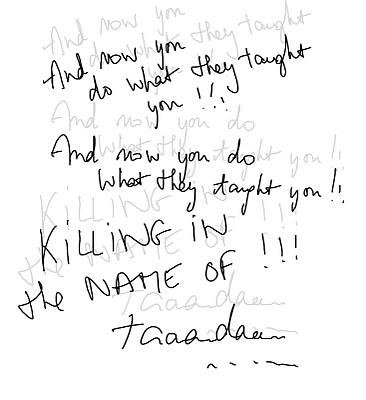 And now you
do what they taught
you !!!
And now you do
what they taught you !!
KILLING IN
the NAME OF !!!